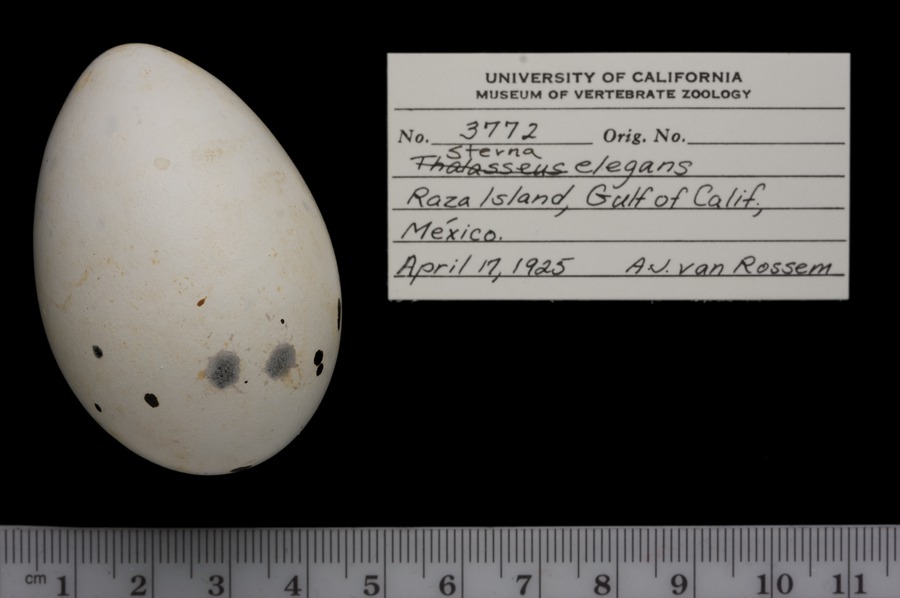 UNIVERSITY OF CALIFORNIA
MUSEUM OF VERTEBRATE ZOOLOGY
No. 3772 Orig. No.
Sterna
Thalasseus elegans
Raza Island, Gulf of Calif.,
México.
April 17, 1925 A.J. van Rossem
cm 1 2 3 4 5 6 7 8 9 10 11